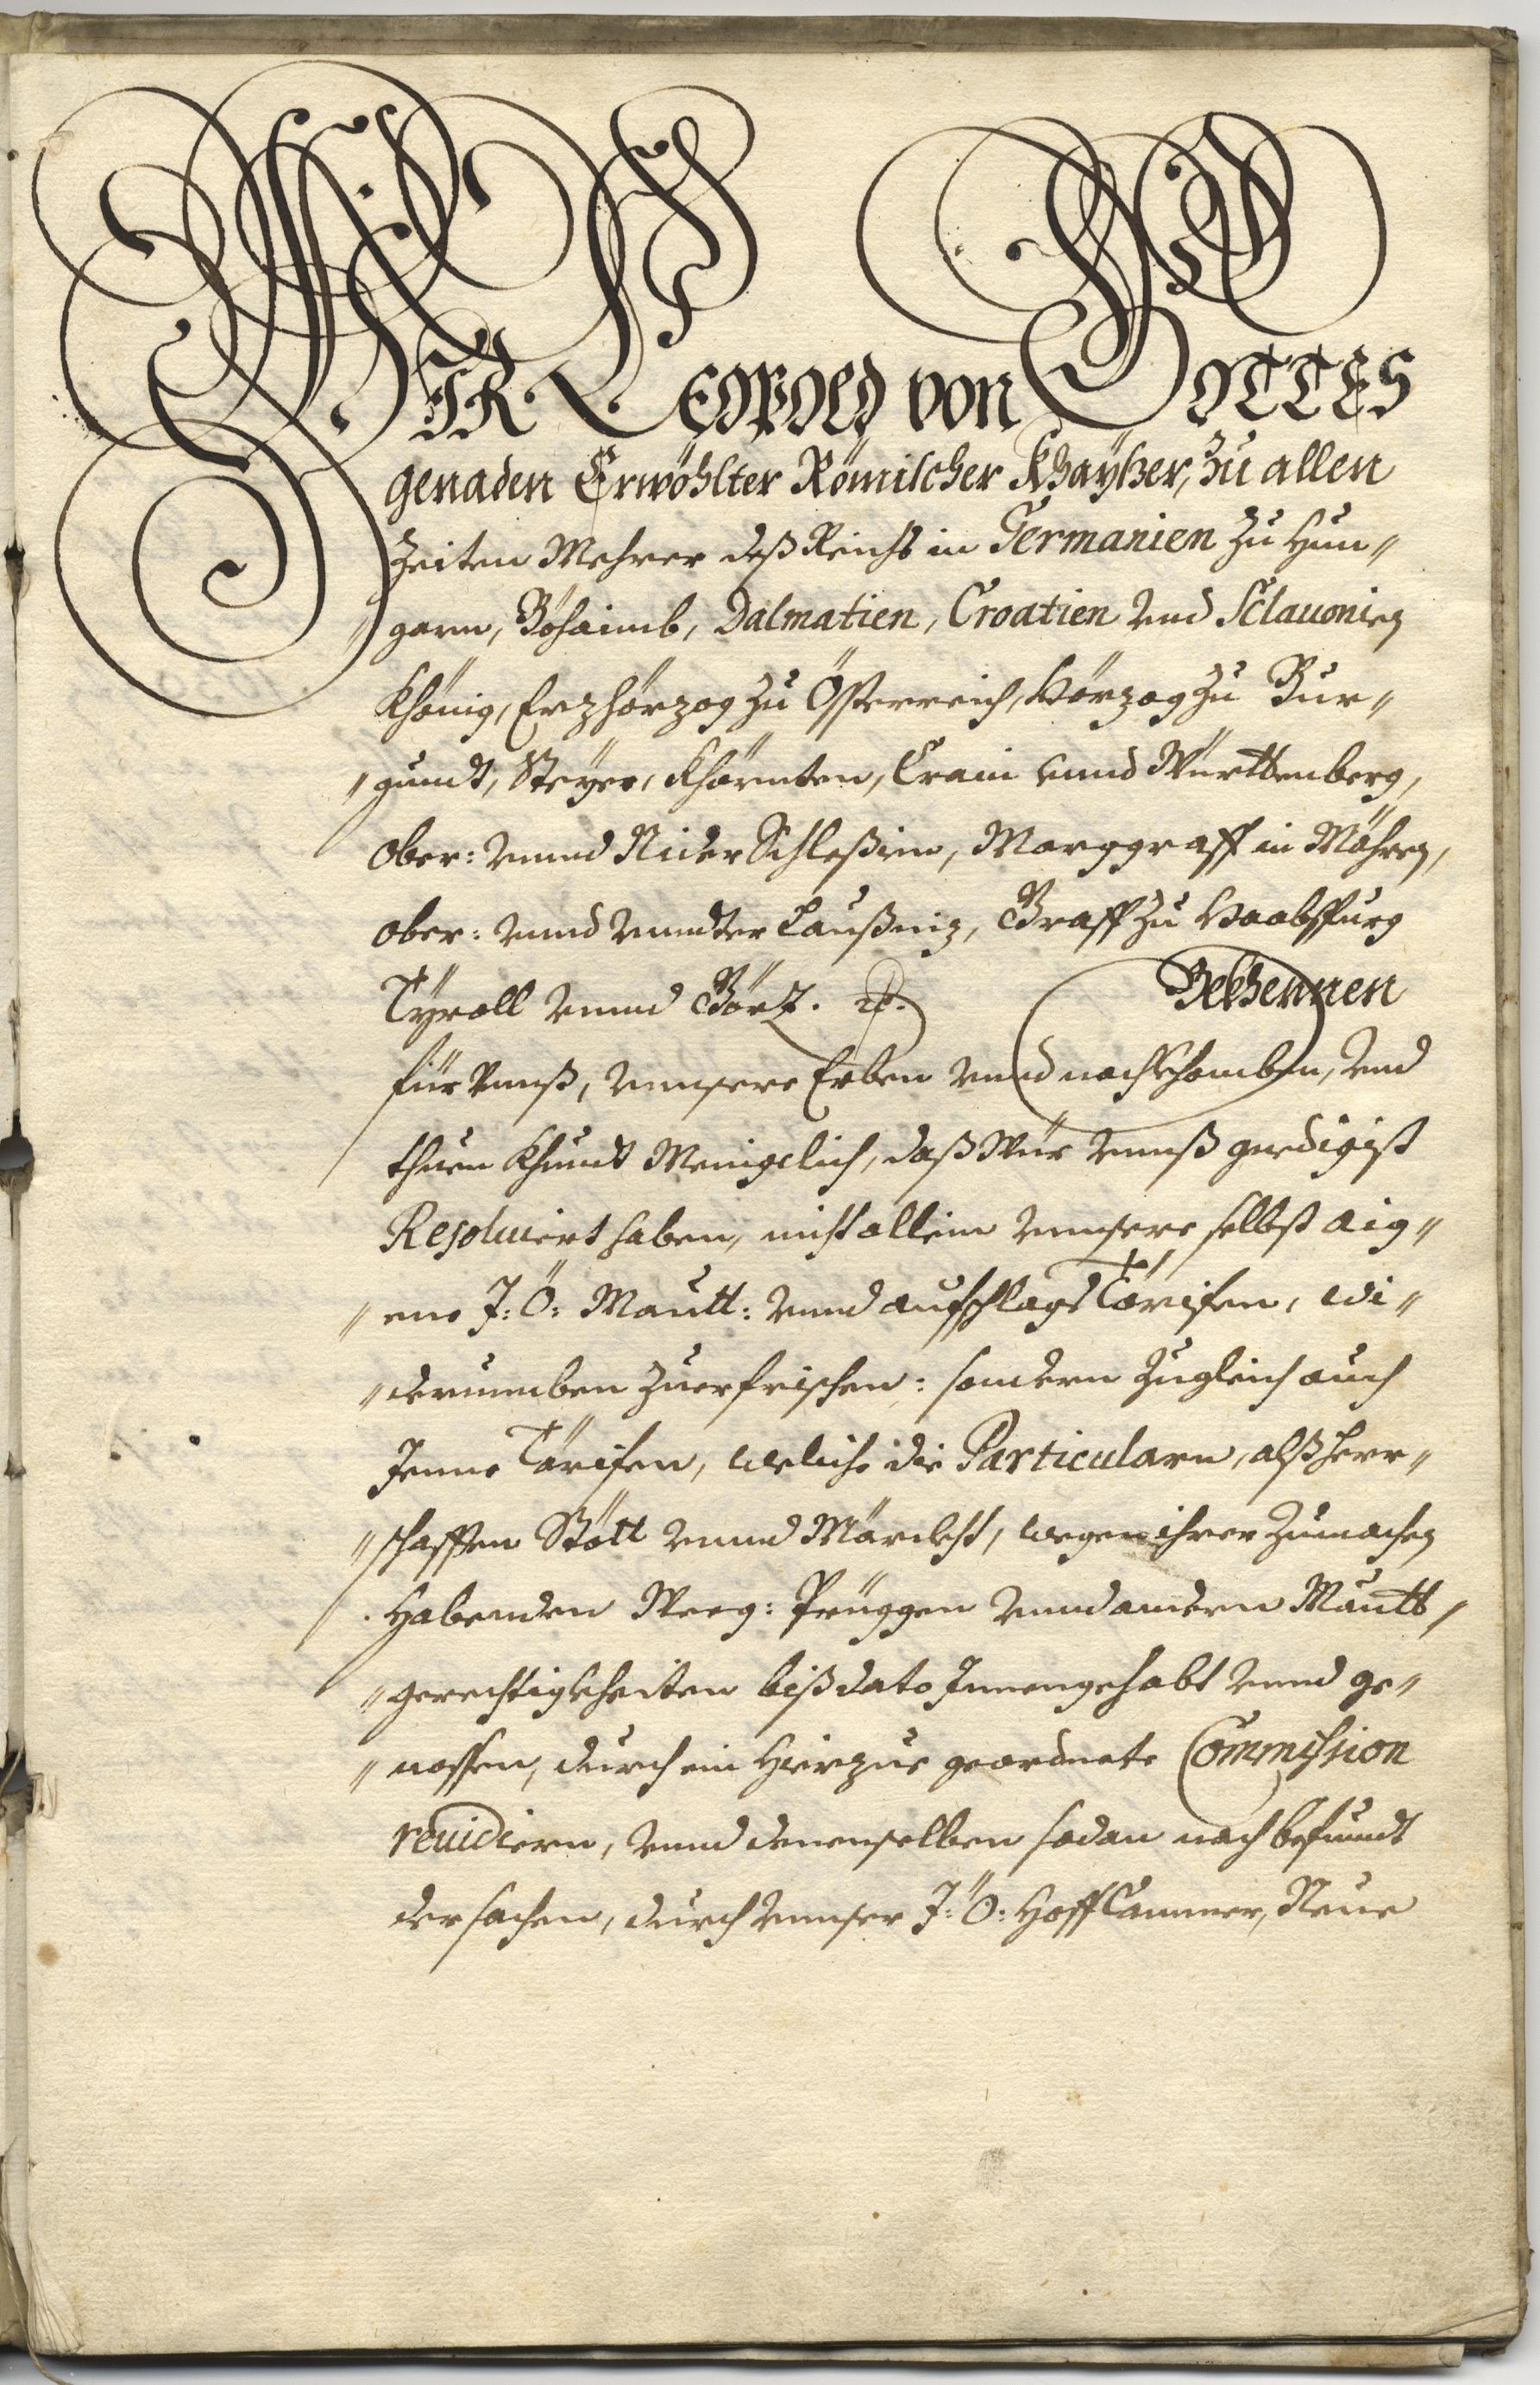 WIR LEOPOLD VON GOTTES
genaden Erwöhlter Römischer Khaÿßer, zu allen
Zeiten Mehrer deß Reichs in Germanien zu Hun„
„garn, Böhaimb, Dalmatien, Croatien vnd Sclauonien
Khönig, Erzhörzog zu Össterreich, Hörzog zu Bur„
„gundt, Steÿer, Khärnten, Crain vnnd Württenberg,
Ober: vnnd Nider Schleßien, Marggraff in Mähren,
Ober: vnnd vnndter Laußniz, Graff zu Haabspurg
Tÿroll vnnd Görz. ꝛc. Bekhennen
für vnnß, vnnsere Erben vnnd nachkhomben, vnd
thuen khundt Menigelich, daß Wür vnnß gnedigist
Resoluiert haben, nicht allein vnnsere selbst aig„
„ene I: Ö: Mautt: vnnd aufschlags Tarifen, wi„
„derumben zuerfrischen: sondern zugleich auch
Jenne Tarifen, weliche die Particularn, alß Herr„
„schafften Stött vnnd Märckht, wegen ihrer zumachen
habenden Weeg: Prüggen vnnd andern Mautts„
„gerechtigkheiten biß dato Innengehabt vnnd ge„
„nossen, durch ein hierzue geordnete Commission
reuidiern, vnnd denenselben sodan nach befundt
der sachen, durch vnnser I: Ö: Hoff Cammer, Neue